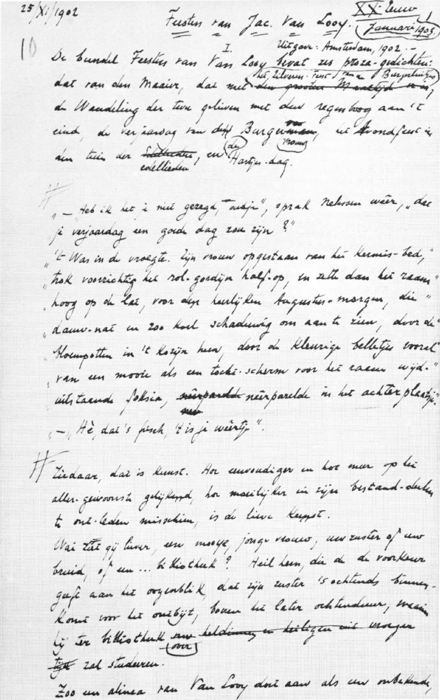 25/XI/1902 Feesten van Jac. Van Looy. XXe Eeuw
Januari 1903
10 I. Uitgever: Amsterdam, 1902. —
De bundel Feesten van Van Looy bevat zes proza-gedichten:
het Zilveren Feest Burgerluidjes
dat van den Maaier, dat met den
de Wandeling der twee gelieven met den regenboog aan 't
eind, de verjaardag van de Burger
vrouw, het Avondfeest in
den tuin der
edellieden, en de Hartjes-dag.
„— Heb ik het je niet gezegd, ", sprak weer, „dat
je verjaardag een goede dag zou zijn?"
„'t Was in de vroegte. Zijn vrouw opgestaan van het kermis-bed,
„trok voorzichtig het rol-gordijn half-op, en zette dan het raam
„hoog op de lat, voor den heerlijken Augustus-morgen, die
„dauw-nat en zoo koel schaduwig om aan te zien, door de
„bloempotten in 't kozijn heen, door de kleurige belletjes vooral
„van een mooie als een tochtscherm voor het raam wijd-
„uitstaande foksia, néérparelde in het achterplaatsje.
„— „Hè, dat 's frisch,
Ziedaar, dat is kunst. Hoe eenvoudiger en hoe meer op het
aller-gewoonste gelijkend, hoe moeilijker in zijne bestand-deelen
te ont-leden misschien, is de lieve kunst.
Wat gij liever, een mooye, jonge vrouw, uw zuster of uw
bruid, of een ... bibliotheek? Heil hem, die de voorkeur
geeft aan het oogenblik, dat zijn zuster 's ochtends binnen-
komt voor het ontbijt, boven het later ochtenduur, waarin
hij ter bibliotheek over
zal studeren.
Zoo een alinea van Van Looy doet aan als een onbekende,